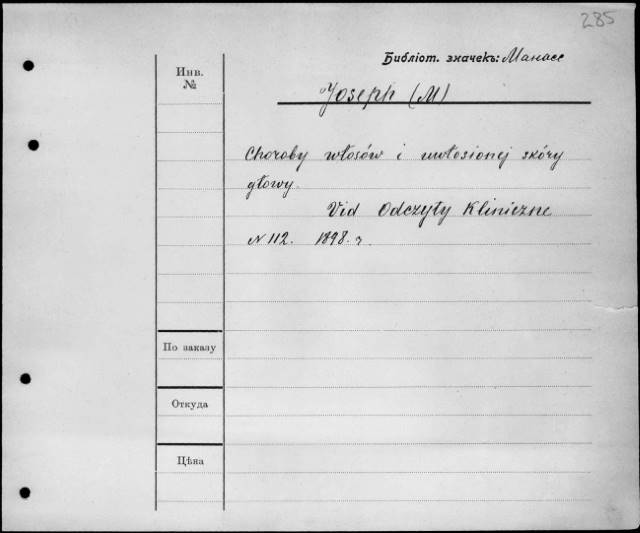 285
Библіот. значекъ: Манасе
Инв.
№
Joseph (M)
Choroby włosów i uwłosionej skóry
głowy.
Vid Odczyty Kliniczne
N 112. 1898. r.
По заказу
Откуда
Цѣна